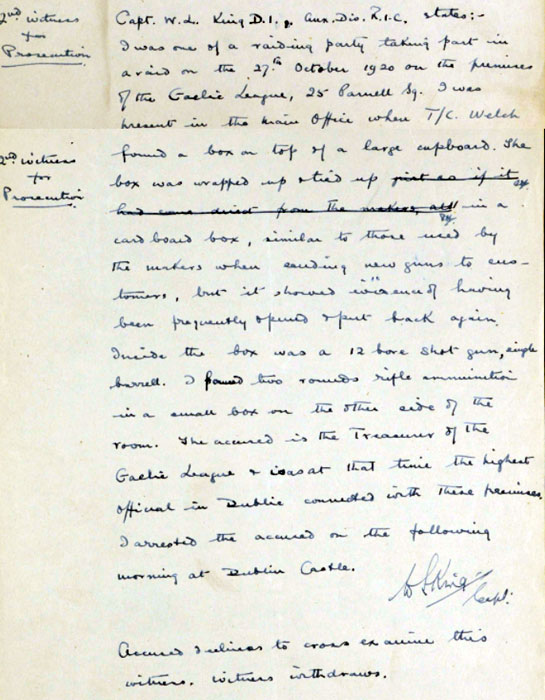 2nd Witness
for
Prosecution
Capt. W.L. King D.I., Aux. Div. R.I.C. states:-
I was one of a raiding party taking part in
a raid on the 27th October 1920 on the premises
of the Gaelic League, 25 Parnell Sq. I was
present in the main Office when T/C. Welch
2nd Witness
for
Prosecution
found a box on top of a large cupboard. The
box was wrapped up & tied up just as if it
had come direct from the makers, all in a
cardboard box, similar to those used by
the makers when sending new guns to cus-
tomers, but it showed evidence of having
been frequently opened & put back again.
Inside the box was a 12 bore shot gun, single
barrell. I found two rounds rifle ammunition
in a small box on the other side of the
room. The accused is the Treasurer of the
Gaelic League & is as at that time the highest
official in Dublin connected with these premises.
I arrested the accused on the following
morning at Dublin Castle.
W L King
Capt.
Accused declines to cross examine this
witness. Witness withdraws.